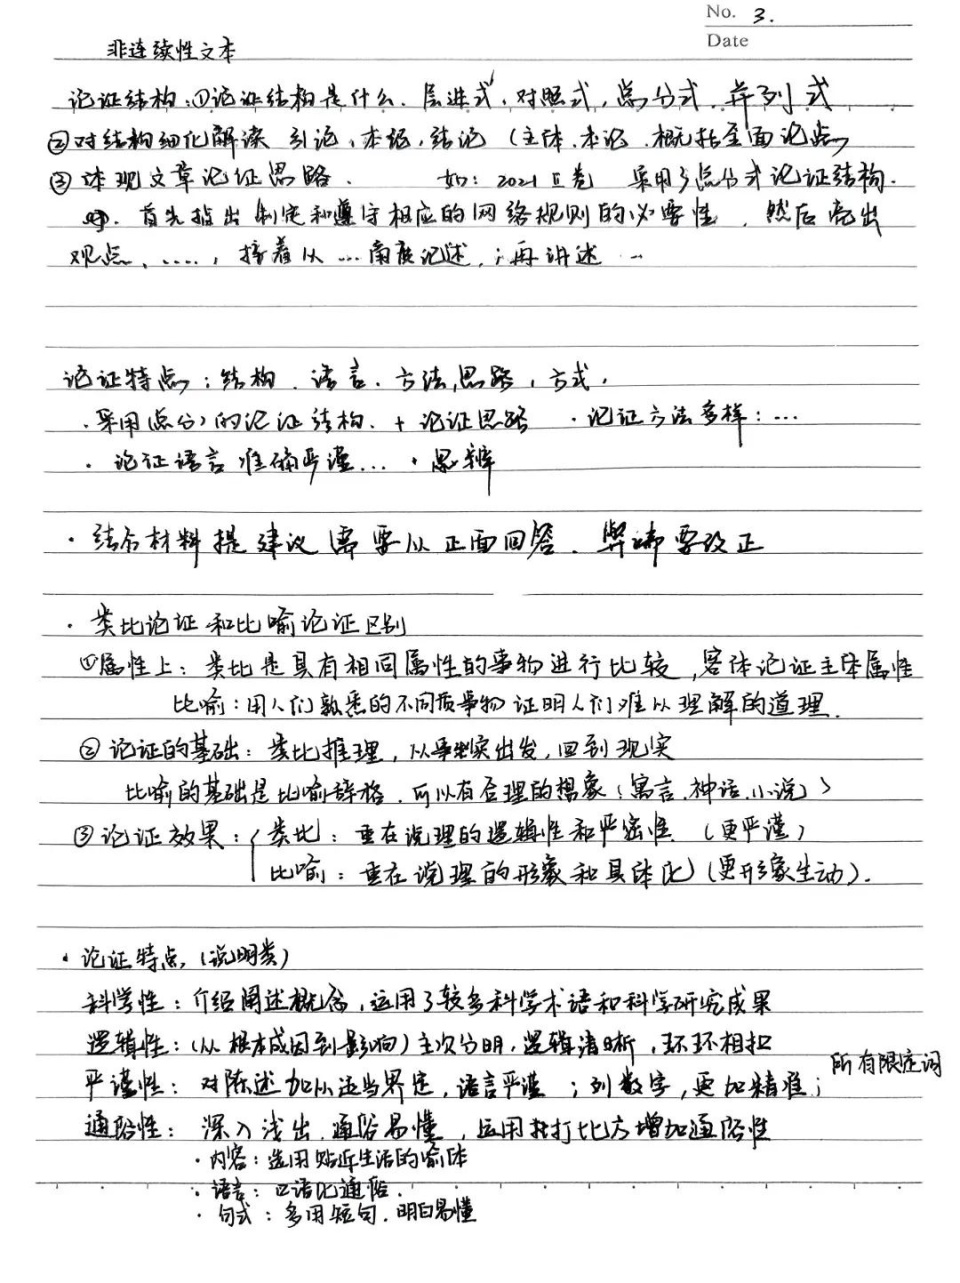 No. 3.
Date
非连续性文本
论证结构:①论证结构是什么、层进式,对照式,总分式、并列式
②对结构细化解读 引论,本论,结论(主体、本论、概括全面论点
③体现文章论证思路. 如:2021 I卷 采用了总分式论证结构.
首先指出制定和遵守相应的网络规则的必要性,然后亮出
观点、……,接着从…角度论述,;再讲述…
论证特点:结构、语言、方法,思路,方式,
·采用(总分)的论证结构.+论证思路 ·论证方法多样:…
·论证语言准确严谨… ·思辨
·结合材料提建议需要从正面回答、弊端要改正
·类比论证和比喻论证区别
①属性上:类比是具有相同属性的事物进行比较,客体论证主体属性
比喻:用人们熟悉的不同质事物证明人们难以理解的道理.
②论证的基础:类比推理,从事实出发,回到现实
比喻的基础是比喻辞格、可以有合理的想象(寓言、神话、小说)
③论证效果:类比:重在说理的逻辑性和严密性(更严谨)
比喻:重在说理的形象和具体化(更形象生动).
·论证特点(说明类)
科学性:介绍阐述概念,运用了较多科学术语和科学研究成果
逻辑性:(从根本成因到影响)主次分明,逻辑清晰,环环相扣
严谨性:对陈述加以适当界定,语言严谨;列数字,更加精准; 所有限定词
通俗性:深入浅出、通俗易懂,运用打比方增加通俗性
·内容:选用贴近生活的喻体
·语言:口语化通俗.
·句式:多用短句.明白易懂